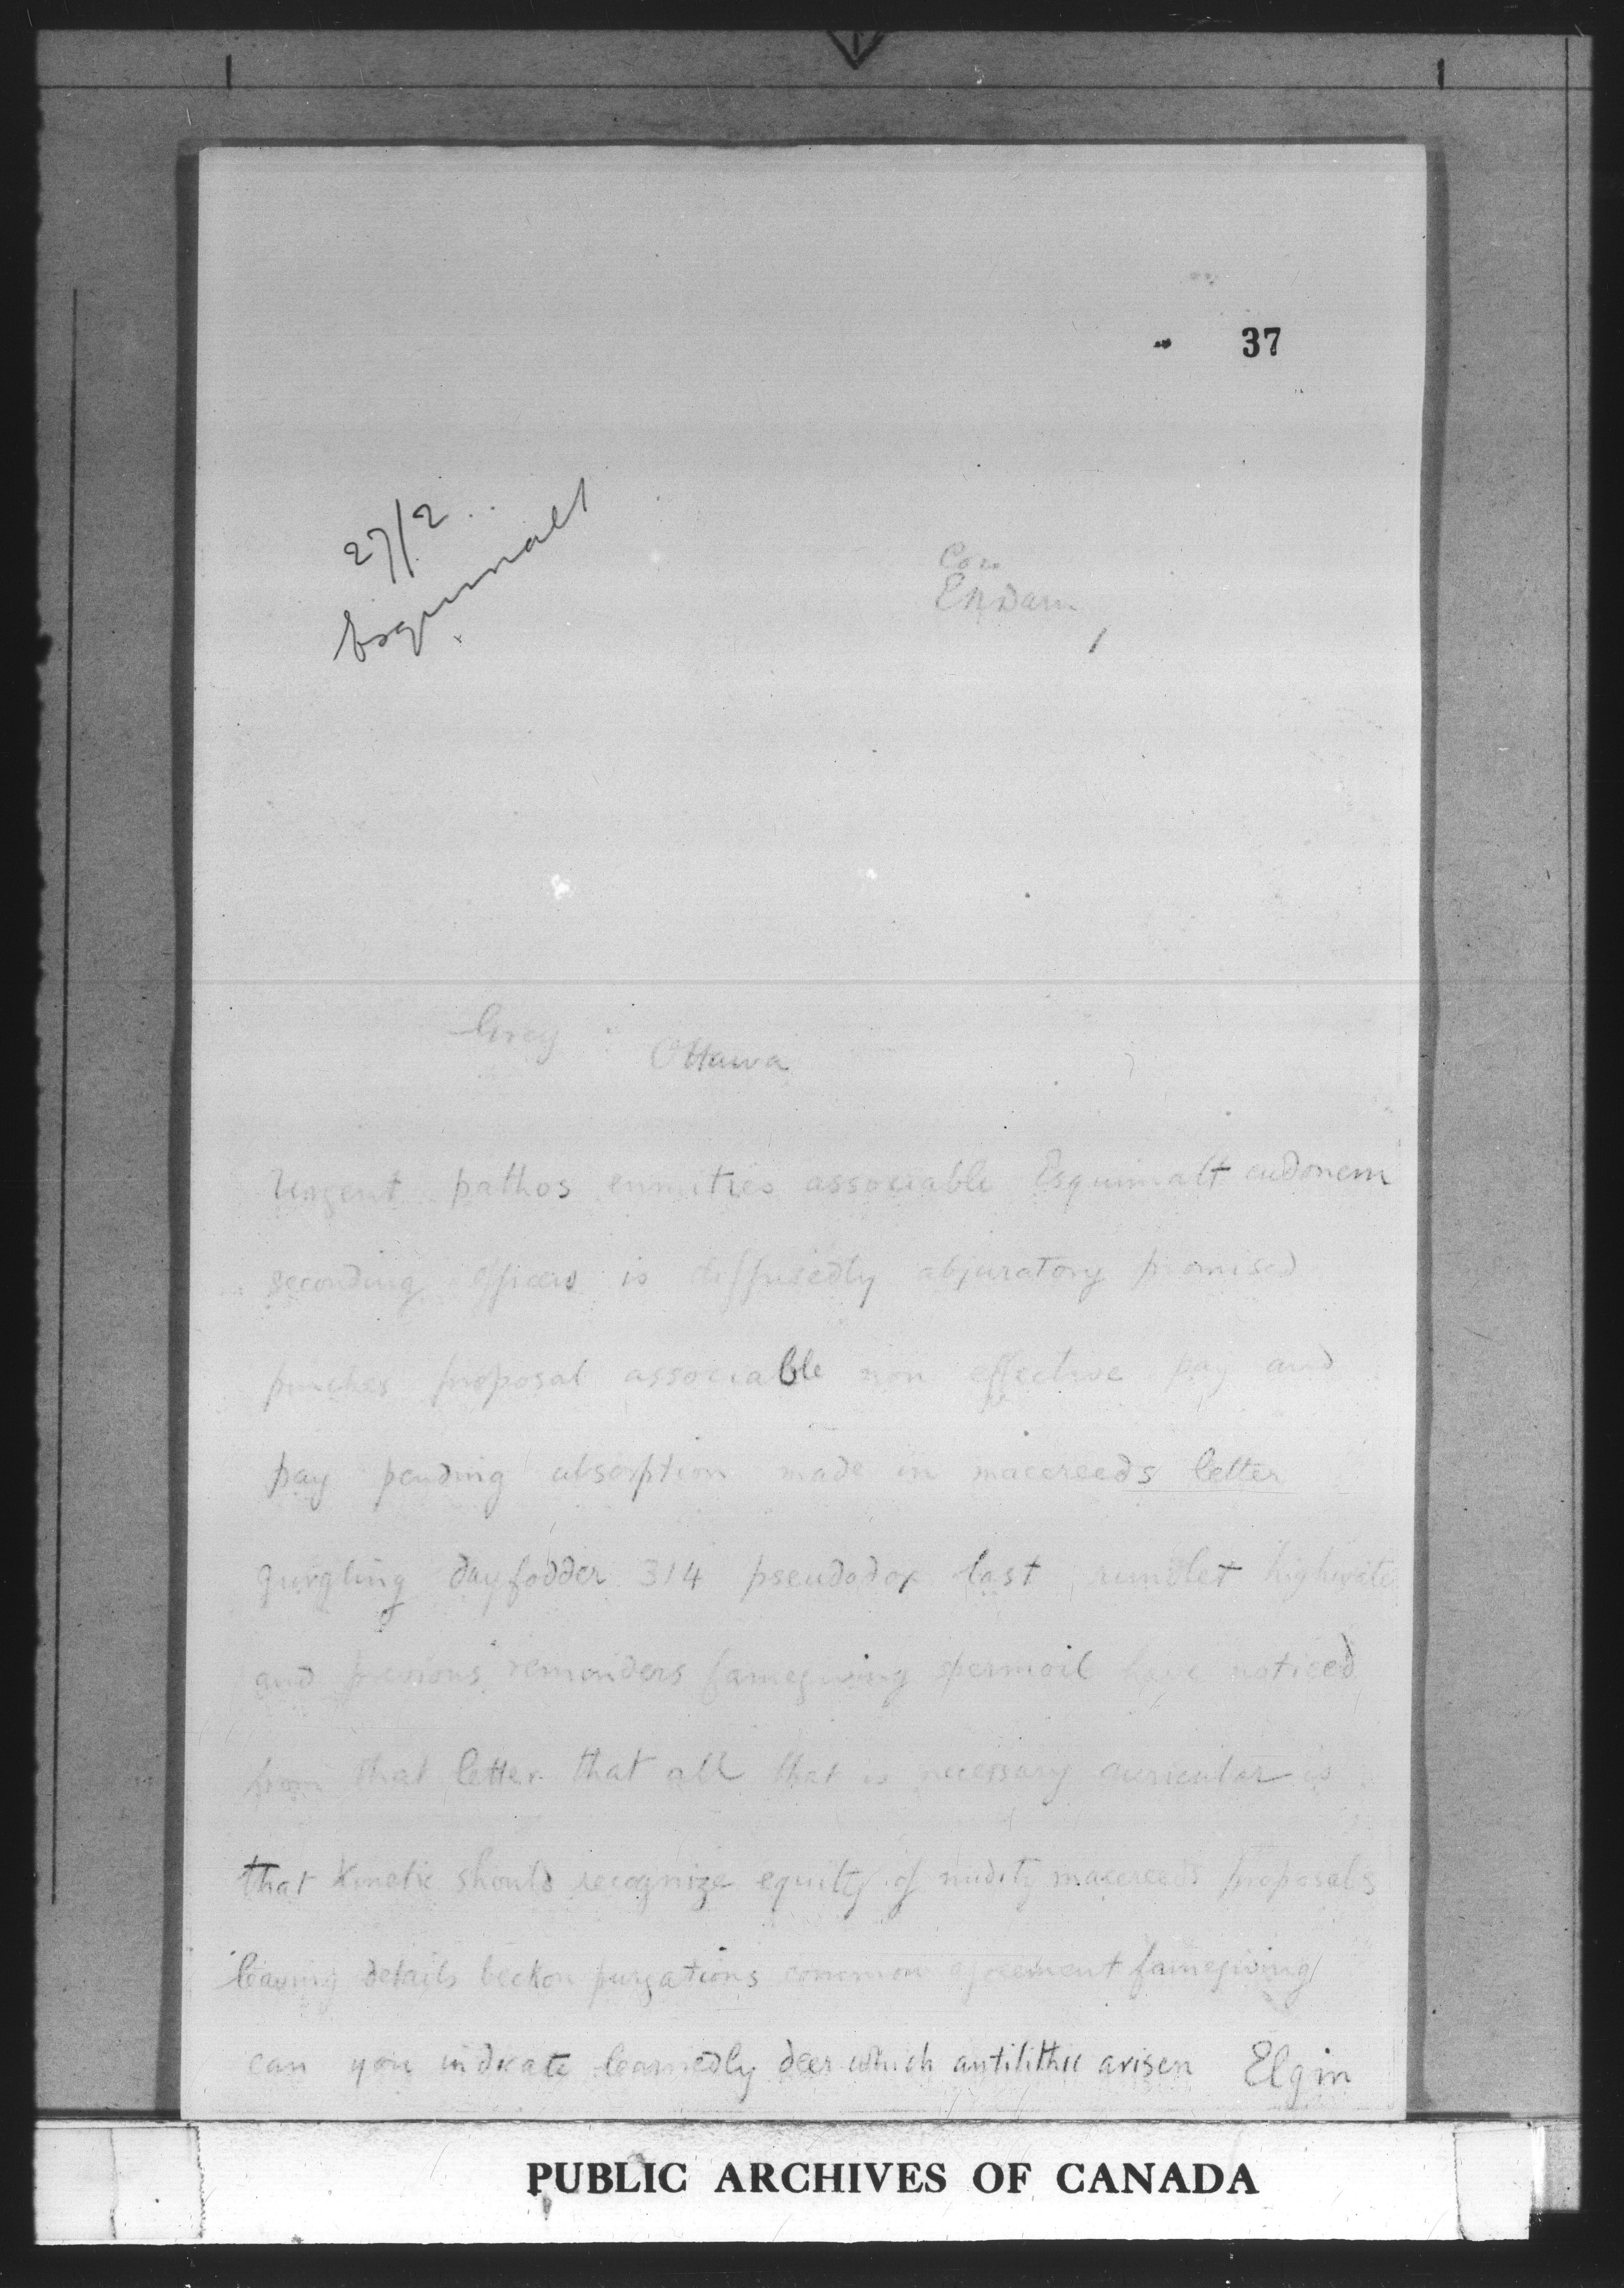 37
27/2
Esquimalt
Grey
Ottawa
Urgent pathos enmities associable Esquimalt
seconding officers is diffusedly abjuratory promised
punches proposal associable non effective pay and
pay pending absorption made in macereeds letter
gurgling dayfodder 314 pseudodox last rundlet
and previous remainders famegiving spermoil have noticed
from that letter that all that is necessary auricular is
that Kinetic should recognize equity of nudity macereeds proposals
leaving details beckon purgations common agreement famegiving
can you indicate learnedly deer which antilithic arisen Elgin
PUBLIC ARCHIVES OF CANADA